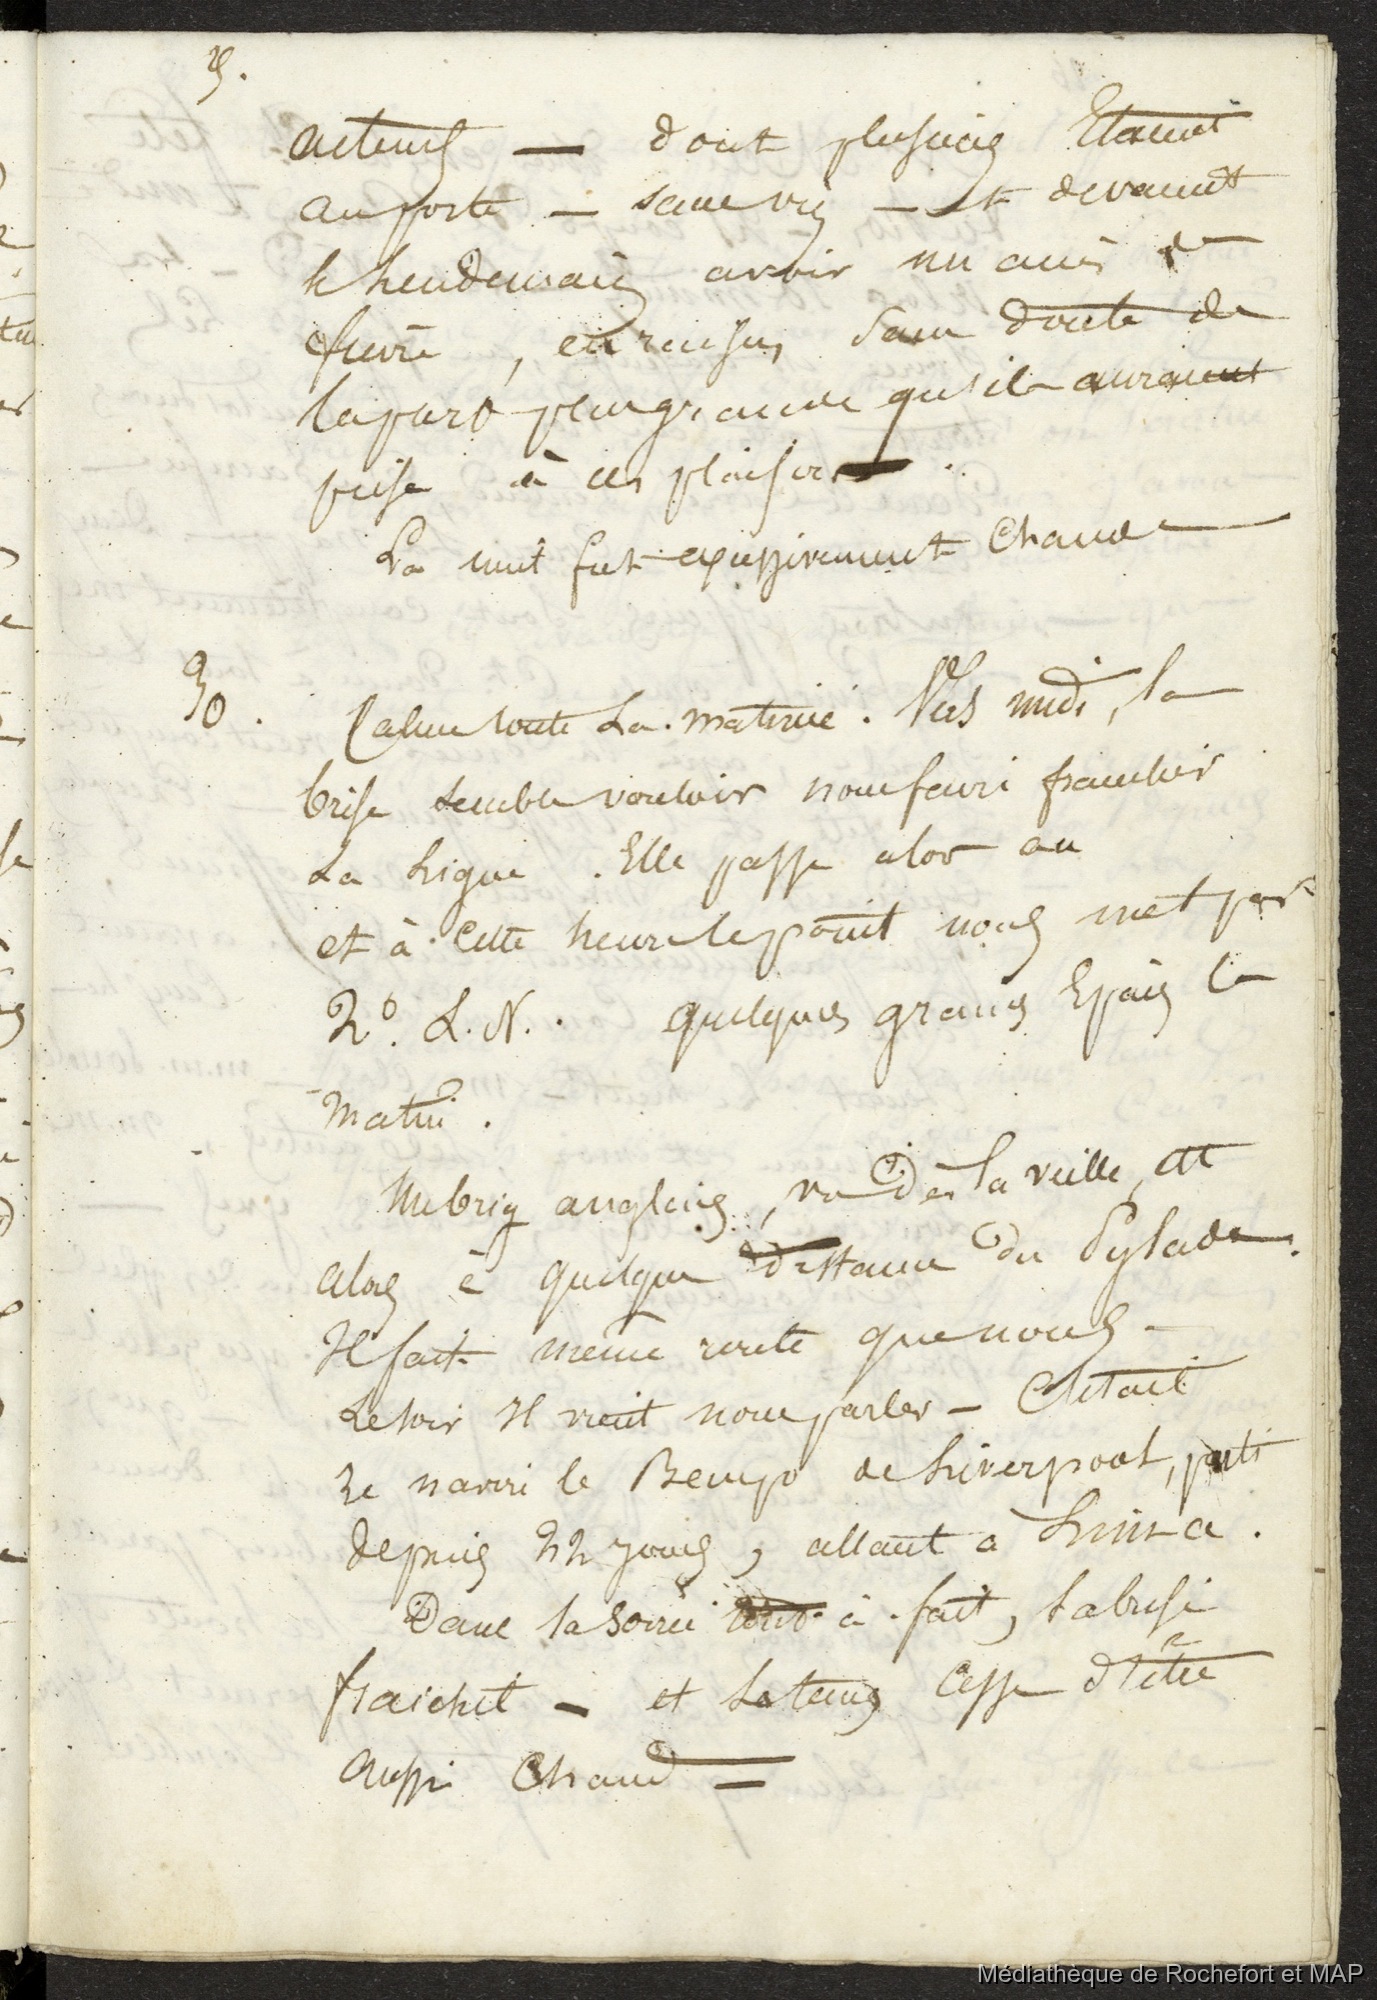 acteurs — dont plusieurs Etaient
au poste — sans vie — et devaient
le Lendemain avoir un accès de
fièvre, en raison, sans doute de
la part plus grande qu'ils auraient
prise à ces plaisirs.
La nuit fut excessivement Chaude
30. Calme toute La matinée. Vers midi, la
brise semble vouloir nous faire franchir
La Ligne. Elle passe alors au
et à cette heure le point nous met par
2°. L. N. . quelques grains Epais le
matin.
Un brig anglais, vu dès la veille, est
alors à quelque distance du Pylade.
Il fait même route que nous -
Le soir Il vient nous parler - C'était
le navire le de Liverpool, parti
depuis 22 jours, allant à Lima.
Dans la soirée tout à fait, la brise
fraichit — et Le temps cesse d'être
aussi Chaud =
Médiathèque de Rochefort et MAP